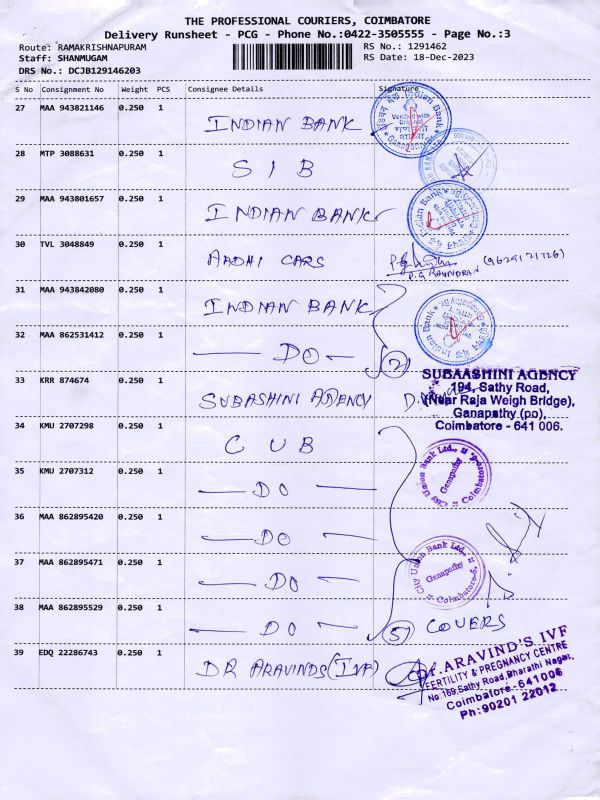 THE PROFESSIONAL COURIERS, COIMBATORE
Delivery Runsheet - PCG - Phone No.:0422-3505555 - Page No.:3
Route: RAMAKRISHNAPURAM
Staff: SHANMUGAM
DRS No.: DCJB129146203
RS No.: 1291462
RS Date: 18-Dec-2023
S No Consignment No Weight PCS Consignee Details Signature
27 MAA 943821146 0.250 1 INDIAN BANK
Indian Bank
Ganapathy
28 MTP 3088631 0.250 1 SIB
29 MAA 943801657 0.250 1 INDIAN BANK
Indian Bank
30 TVL 3048849 0.250 1 AADHI CARS
P.G RAVINDRAN (9629171726)
31 MAA 943842080 0.250 1 INDIAN BANK
Indian Bank
32 MAA 862531412 0.250 1 — DO — (2)
33 KRR 874674 0.250 1 SUBASHINI AGENCY
SUBAASHINI AGENCY
194, Sathy Road,
(Near Raja Weigh Bridge),
Ganapathy (po),
Coimbatore - 641 006.
34 KMU 2707298 0.250 1 CUB
City Union Bank Ltd.,
Ganapathy
Coimbatore-6.
35 KMU 2707312 0.250 1 — DO —
36 MAA 862895420 0.250 1 — DO —
37 MAA 862895471 0.250 1 — DO —
City Union Bank Ltd.,
Ganapathy
Coimbatore-6.
38 MAA 862895529 0.250 1 — DO — (5) COVERS
39 EDQ 22286743 0.250 1 DR ARAVINDS (IVF)
Dr. ARAVIND'S IVF
FERTILITY & PREGNANCY CENTRE
No.169, Sathy Road, Bharathi Nagar,
Coimbatore-641006
Ph:90201 22012